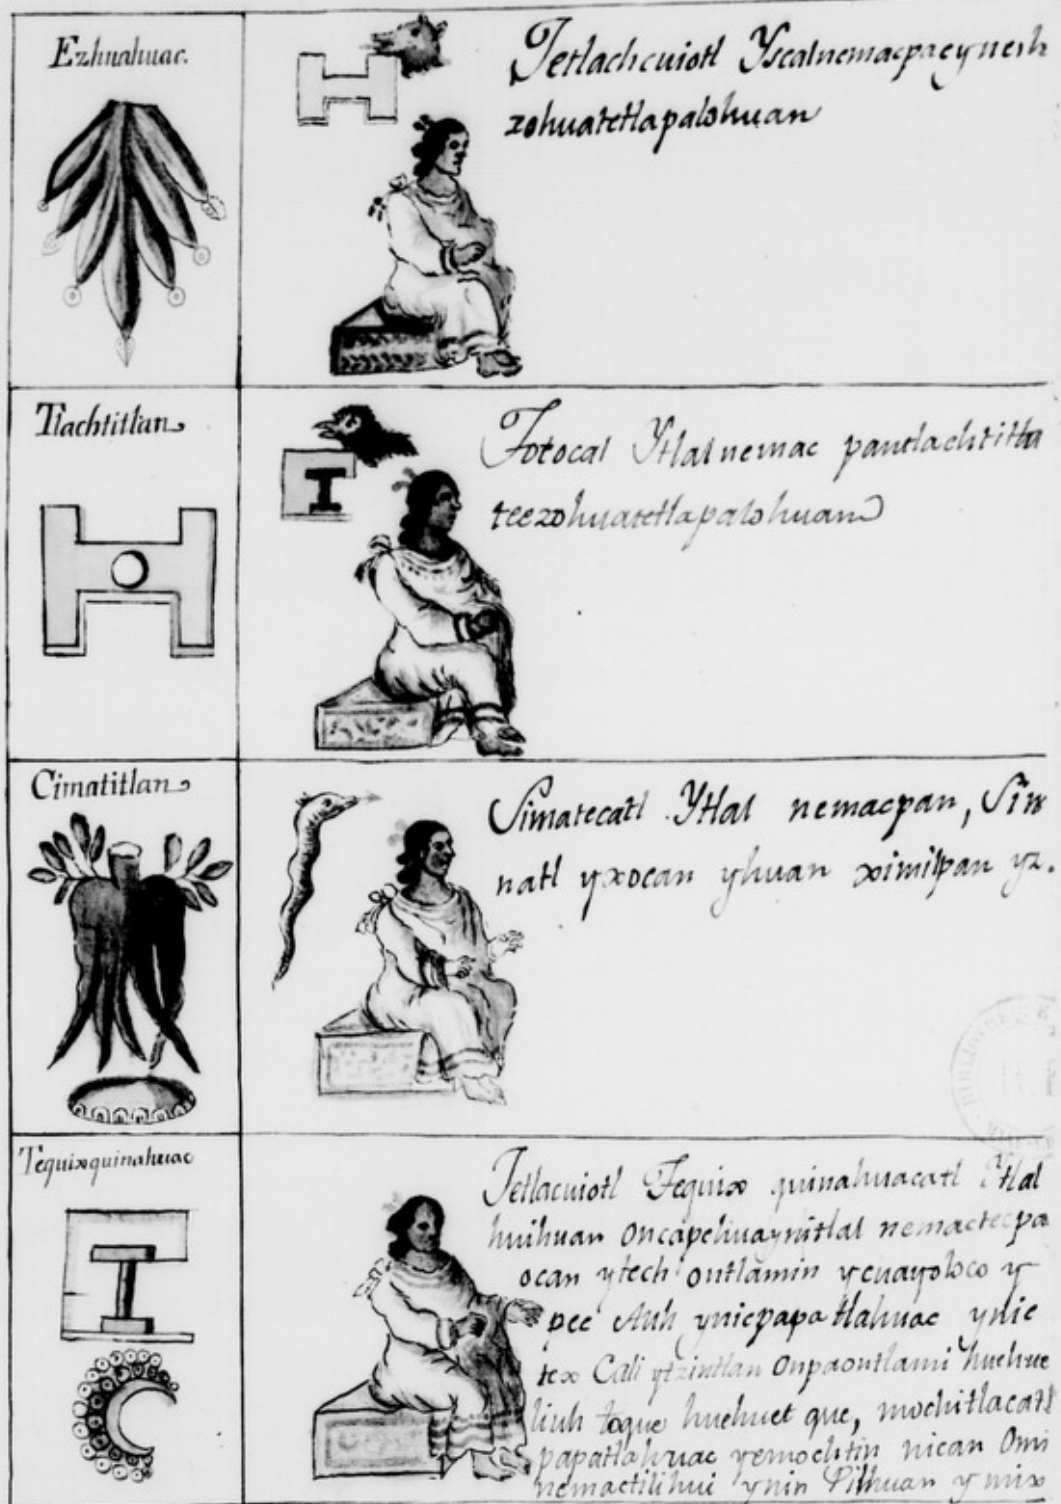 Ezhuahuac.
Tetlachcuiotl Yscalnemacpaeynech
zohuatetlapalohuan
Tlachtitlan
Totocal Ytlalnemac pantlachtitla
teezohuatetlapalohuan
Cimatitlan
Simatecatl Ytlal nemacpan, Sin
natl yxocan yhuan ximilpan yz.
Tequixquinahuac
Tetlacuiotl Tequix quinahuacatl Ytlal
huihuan oncapehuaynitlal nemactecpa
ocan ytech ontlamin ycuayoloco y
pec Auh ynicpapatlahuac ynic
tex Cali ytzintlan Onpaontlami huehue
liuh toque huehuet que, mochitlacatl
papatlahuac yemochtin nican Omi
nemactilihui ynin Pilhuan y mix